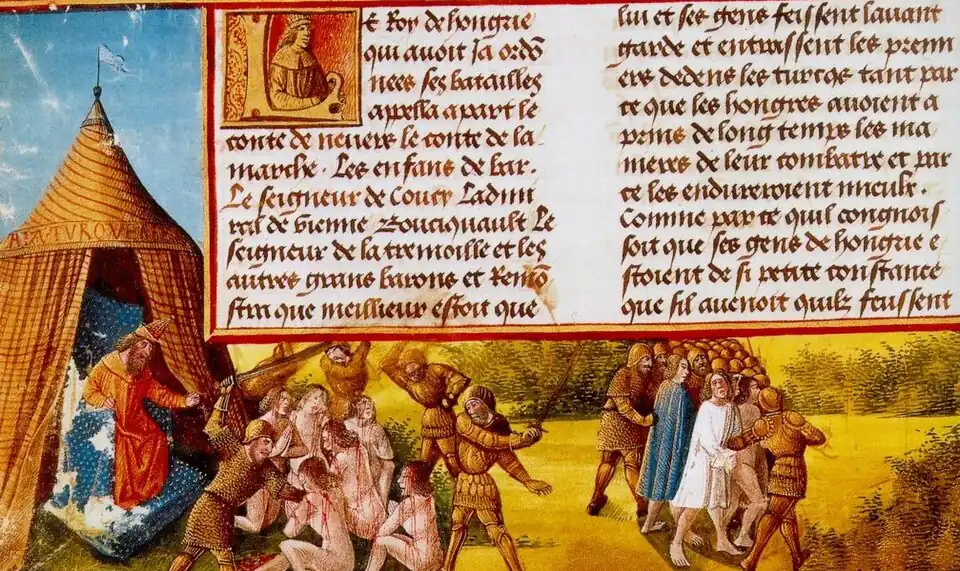 Le Roy de hongrie
qui avoit ja ordō
nees ses batailles
appella a part le
conte de nevers le conte de la
marche . Les enfans de bar .
Le seigneur de Coucy Ladmi
ral de vienne Bouciquault Le
seigneur de la tremoille et les
autres grans barons et Remō
stra que meillieur estoit que
lui et ses gens feissent lavant
garde et entrassent les premi
ers dedens les turcqs tant par
ce que les hongres avoient a
prins de long temps les ma
nieres de leur combatre et par
ce les endureroient mieulx .
Comme par ce quil congnois
soit que ses gens de hongrie e
stoient de si petite constance
que sil avenoit quilz feussent